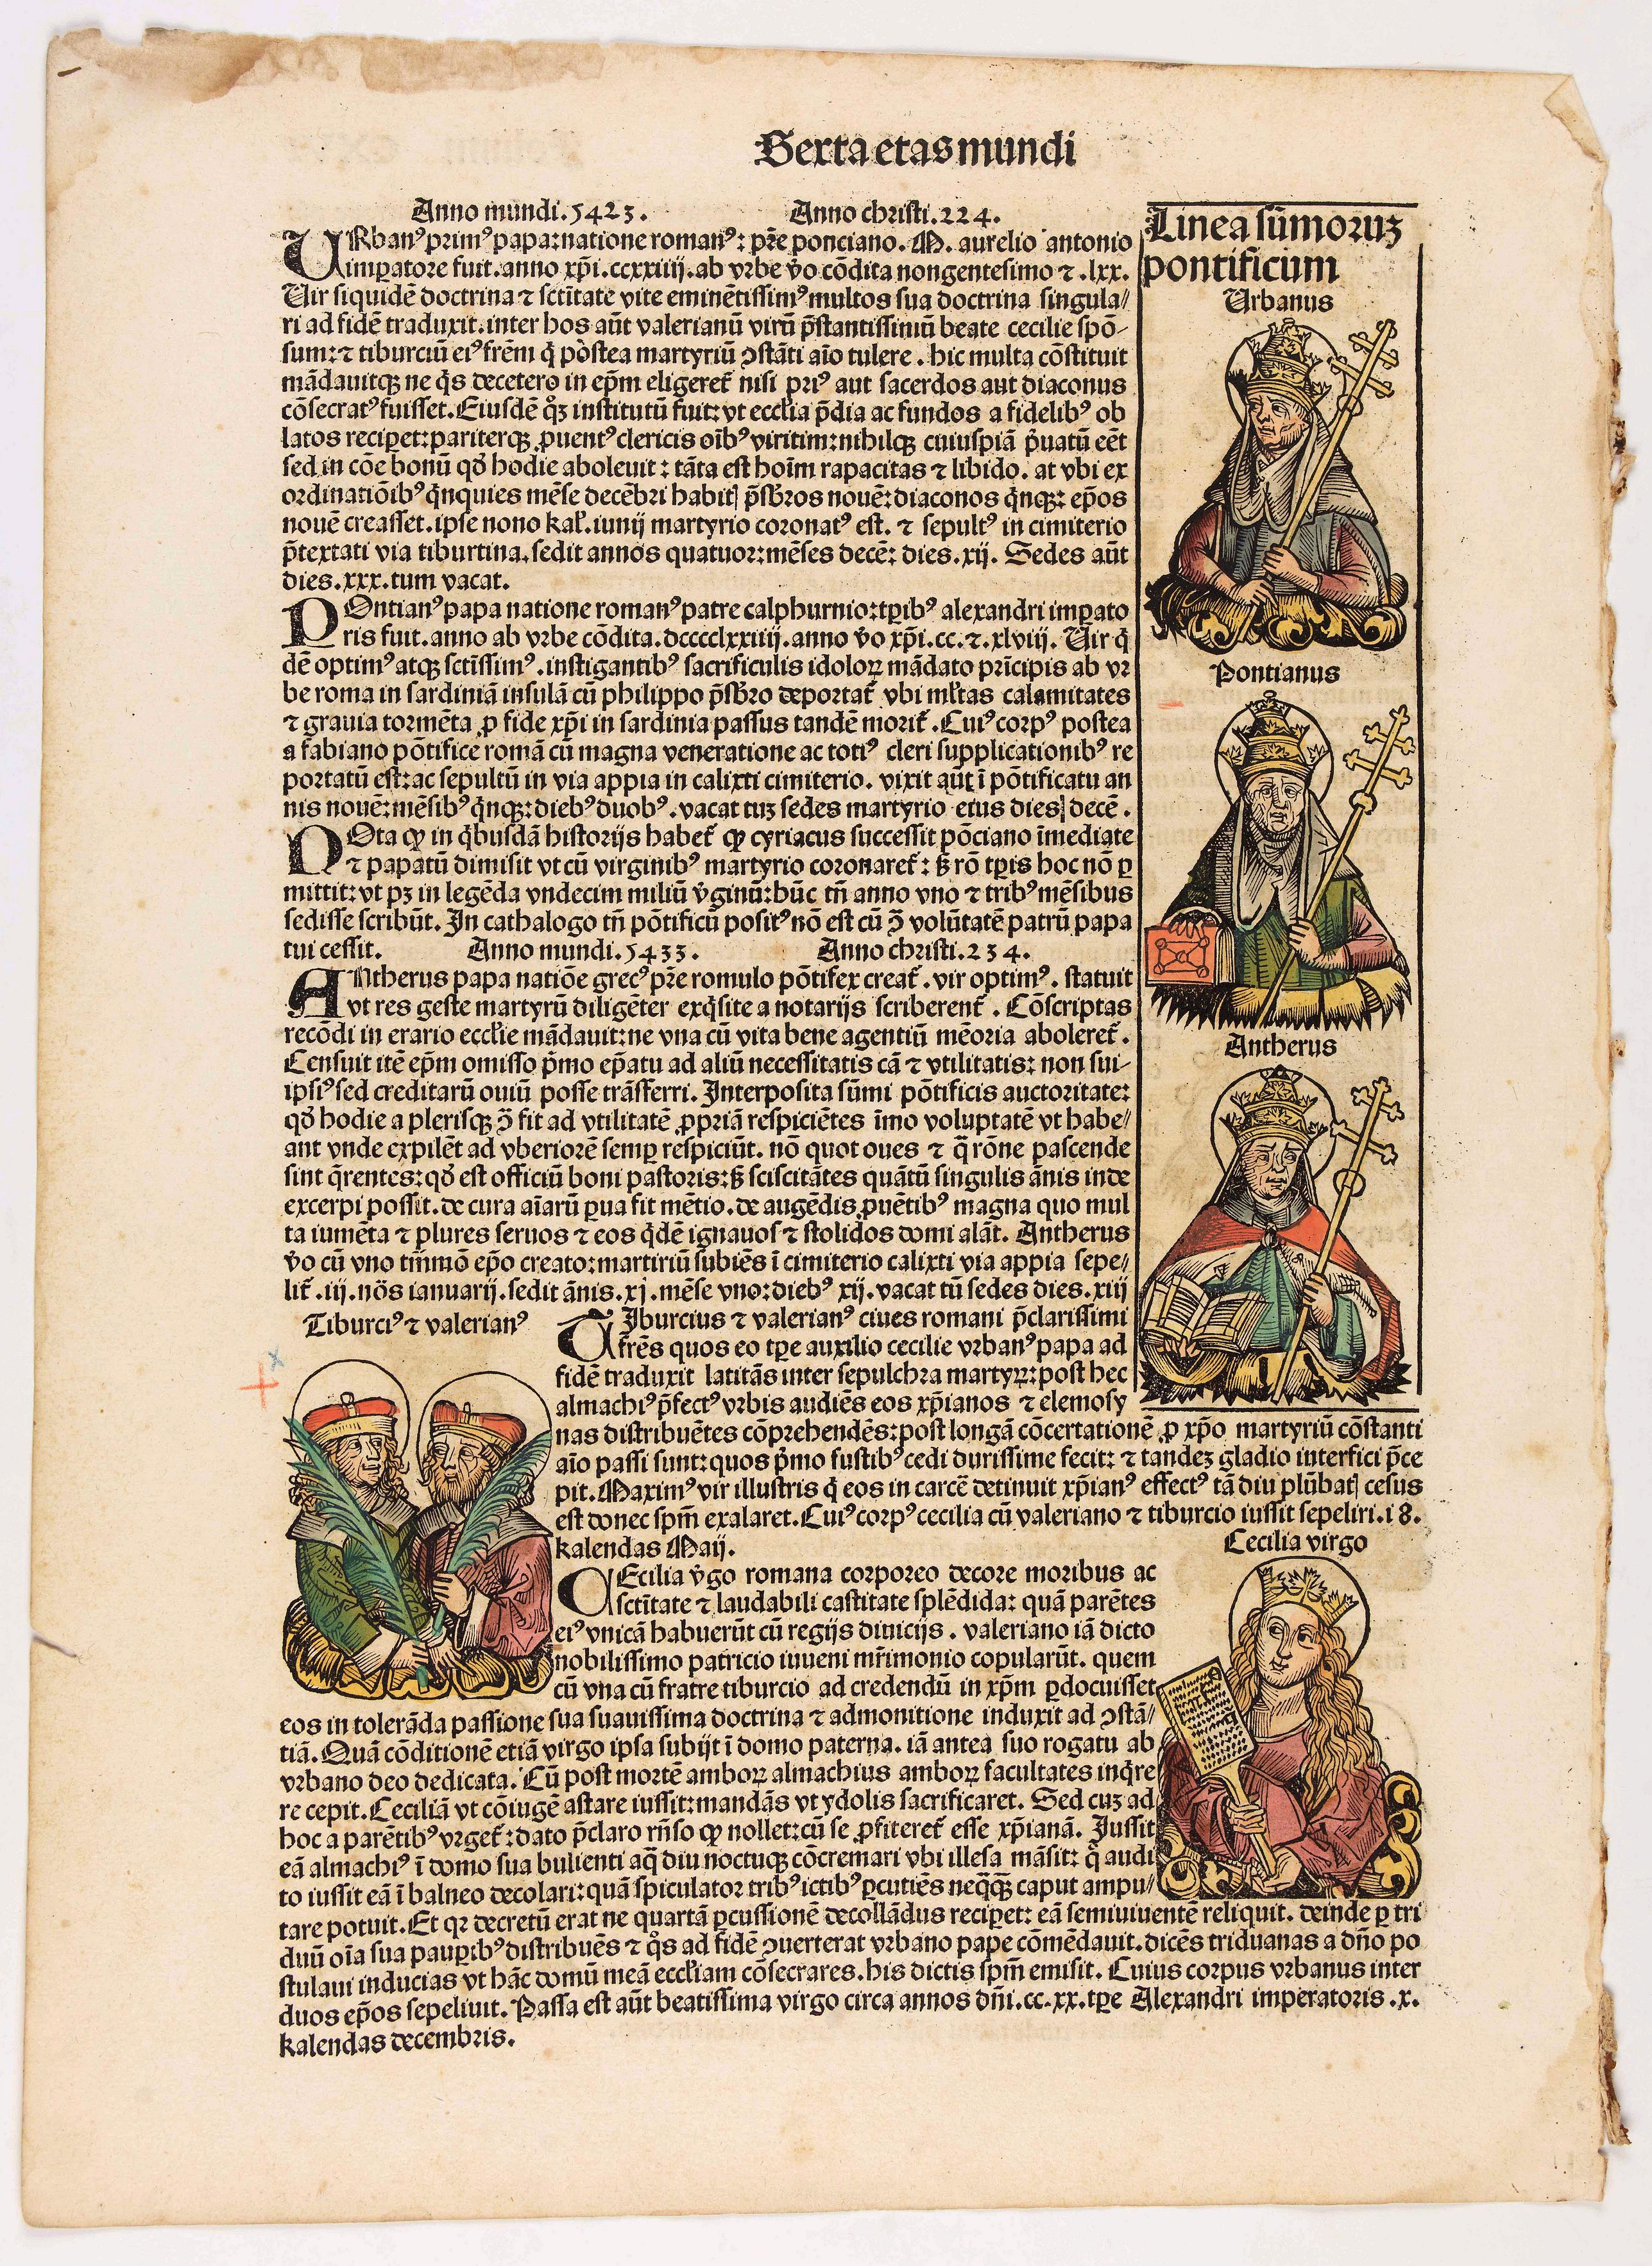 Sexta etas mundi
Anno mundi.5423. Anno christi.224.
URbanꝰ primꝰ papa: natione romanꝰ: pr̄e ponciano. M. aurelio antonio
imꝑatore fuit. anno xp̄i.ccxxiiij. ab vrbe v̄o cōdita nongentesimo ⁊ .lxx.
Uir siquidē doctrina ⁊ sctītate vite eminētissimꝰ multos sua doctrina singula⸗
ri ad fidē traduxit. inter hos aūt valerianū virū p̄stantissimū beate cecilie spō⸗
sum: ⁊ tiburciū eiꝰ frēm q̇ postea martyriū ꝯstāti aīo tulere . hic multa cōstituit
mādauitqꝫ ne q̇s decetero in ep̄m eligeret᷑ nisi priꝰ aut sacerdos aut diaconus
cōsecratꝰ fuisset. Eiusdē qͦꝫ institutū fuit: vt eccl̄ia p̄dia ac fundos a fidelibꝰ ob
latos reciꝑet: pariterqꝫ ꝓuentꝰ clericis oībꝰ viritim: nihilqꝫ cuiuspiā ṗuatū eēt
sed in cōe bonū qd̄ hodie aboleuit: tāta est hoīm rapacitas ⁊ libido. at vbi ex
ordinatiōibꝰ q̇nquies mēse decēbri habit p̄sbr̄os nouē: diaconos q̇nqꝫ: ep̄os
nouē creasset. ipse nono kal̄. iunij martyrio coronatꝰ est. ⁊ sepultꝰ in cimiterio
p̄textati via tiburtina. sedit annos quatuor: mēses decē: dies.xij. Sedes aūt
dies.xxx.tum vacat.
POntianꝰ papa natione romanꝰ patre calphurnio: tꝑibꝰ alexandri imꝑato
ris fuit. anno ab vrbe cōdita.dcccclxxiiij. anno v̄o xp̄i.cc.⁊.xlviij. Uir q̇
dē optimꝰ atqꝫ sctīssimꝰ . instigantibꝰ sacrificulis idoloꝝ mādato prīcipis ab vr
be roma in sardiniā insulā cū philippo p̄sbr̄o deportat᷑ vbi ml̄tas calamitates
⁊ grauia tormēta ꝓ fide xp̄i in sardinia passus tandē morit᷑ . Cuiꝰ corpꝰ postea
a fabiano pōtifice romā cū magna veneratione ac totiꝰ cleri supplicationibꝰ re
portatū est: ac sepultū in via appia in calixti cimiterio. vixit aūt ī pōtificatu an
nis nouē: mēsibꝰ q̇nqꝫ: diebꝰ duobꝰ . vacat tuꝫ sedes martyrio eius dies decē .
NOta ꝙ in q̇busdā historijs habet᷑ ꝙ cyriacus successit pōciano īmediate
⁊ papatū dimisit vt cū virginibꝰ martyrio coronaret᷑ : sꝫ rō tꝑis hoc nō ꝑ
mittit: vt pꝫ in legēda vndecim miliū v̄ginū: hūc tn̄ anno vno ⁊ tribꝰ mēsibus
sedisse scribūt. In cathalogo tn̄ pōtificū positꝰ nō est cū ꝯ̄ volūtatē patrū papa
tui cessit. Anno mundi.5433. Anno christi.234.
ANtherus papa natiōe grecꝰ pr̄e romulo pōtifex creat᷑ . vir optimꝰ . statuit
vt res geste martyrū diligēter exq̇site a notarijs scriberent᷑ . Cōscriptas
recōdi in erario eccl̄ie mādauit: ne vna cū vita bene agentiū mēoria aboleret᷑ .
Censuit itē ep̄m omisso ṗmo ep̄atu ad aliū necessitatis cā ⁊ vtilitatis: non sui⸗
ipsiꝰ sed creditarū ouiū posse trāsferri. Interposita sūmi pōtificis auctoritate:
qd̄ hodie a plerisqꝫ ꝯ̄ fit ad vtilitatē ꝓpriā respiciētes īmo voluptatē vt habe⸗
ant vnde expilēt ad vberiorē semꝑ respiciūt. nō quot oues ⁊ q̄ rōne pascende
sint q̄rentes: qd̄ est officiū boni pastoris: sꝫ sciscitātes quātū singulis ānis inde
excerpi possit. de cura aīarū ꝑua fit mētio. de augēdis ꝓuētibꝰ magna quo mul
ta iumēta ⁊ plures seruos ⁊ eos q̇dē ignauos ⁊ stolidos domi alāt. Antherus
v̄o cū vno tm̄mō ep̄o creato: martiriū subiēs ī cimiterio calixti via appia sepe⸗
lit᷑ .iij. nōs ianuarij. sedit ānis.xj. mēse vno: diebꝰ xij. vacat tū sedes dies.xiij
Linea sūmoruꝫ
pontificum
Urbanus
Pontianus
Antherus
Tiburciꝰ ⁊ valerianꝰ
TIburcius ⁊ valerianꝰ ciues romani p̄clarissimi
frēs quos eo tꝑe auxilio cecilie vrbanꝰ papa ad
fidē traduxit latitās inter sepulchra martyꝝ: post hec
almachiꝰ p̄fectꝰ vrbis audiēs eos xp̄ianos ⁊ elemosy
nas distribuētes cōprehendēs: post longā cōcertationē ꝓ xp̄o martyriū cōstanti
aīo passi sunt: quos ṗmo fustibꝰ cedi durissime fecit: ⁊ tandeꝫ gladio interfici p̄ce
pit. Maximꝰ vir illustris q̇ eos in carcē detinuit xp̄ianꝰ effectꝰ tā diu plūbat cesus
est donec sp̄m exalaret. Cuiꝰ corpꝰ cecilia cū valeriano ⁊ tiburcio iussit sepeliri.i8.
kalendas Maij.
Cecilia virgo
CEcilia v̄go romana corporeo decore moribus ac
sctītate ⁊ laudabili castitate splēdida: quā parētes
eiꝰ vnicā habuerūt cū regijs diuicijs . valeriano iā dicto
nobilissimo patricio iuueni mr̄imonio copularūt. quem
cū vna cū fratre tiburcio ad credendū in xp̄m ꝑdocuisset
eos in tolerāda passione sua suauissima doctrina ⁊ admonitione induxit ad ꝯstā⸗
tiā. Quā cōditionē etiā virgo ipsa subijt ī domo paterna. iā antea suo rogatu ab
vrbano deo dedicata. Cū post mortē amboꝝ almachius amboꝝ facultates inq̇re
re cepit. Ceciliā vt cōiugē astare iussit: mandās vt ydolis sacrificaret. Sed cuꝫ ad
hoc a parētibꝰ vrget᷑ : dato p̄claro rn̄so ꝙ nollet: cū se ꝓfiteret᷑ esse xp̄ianā. Jussit
eā almachiꝰ ī domo sua bulienti aq̄ diu noctuqꝫ cōcremari vbi illesa māsit: q̄ audi
to iussit eā ī balneo decolari: quā spiculator tribꝰ ictibꝰ ꝑcutiēs neq̄q̄ꝫ caput ampu⸗
tare potuit. Et qꝛ decretū erat ne quartā ꝑcussionē decollādus reciꝑet: eā semiuiuentē reliquit. deinde ꝑ tri
duū oīa sua pauꝑibꝰ distribuēs ⁊ qͦs ad fidē ꝯuerterat vrbano pape cōmēdauit. dicēs triduanas a dn̄o po
stulaui inducias vt hāc domū meā eccl̄iam cōsecrares. his dictis sp̄m emisit. Cuius corpus vrbanus inter
duos ep̄os sepeliuit. Passa est aūt beatissima virgo circa annos dn̄i.cc.xx.tꝑe Alexandri imperatoris .x.
kalendas decembris.